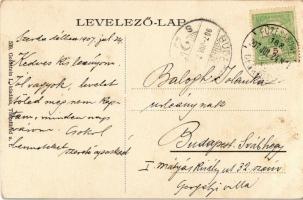 LEVELEZŐ-LAP
Szerda délben 1907. jul. 24.
Kedves kis leányom.
Jól vagyok, levelet
Tőled még nem kap-
tam, minden nap
várom. Csókol
benneteket szerető apuskád
Balogh Jolánka
urleánynak
Budapest. Svábhegy
I Mátyás Király út 32. szám
Gergelyi villa